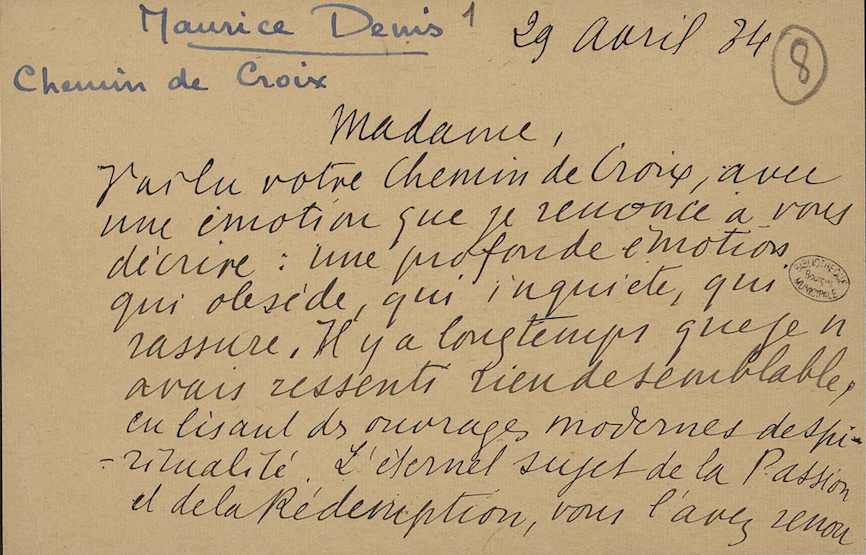 Maurice Denis 1
29 Avril 34
8
Chemin de Croix
Madame,
J'ai lu votre Chemin de Croix, avec
une émotion que je renonce à vous
décrire : une profonde émotion
qui obsède, qui inquiète, qui
rassure. Il y a longtemps que je n
avais ressenti rien de semblable,
en lisant des ouvrages modernes de spi-
-ritualité. L'éternel sujet de la Passion
et de la Rédemption, vous l'avez renou
BIBLIOTHEQUE
Bourges
MUNICIPALE